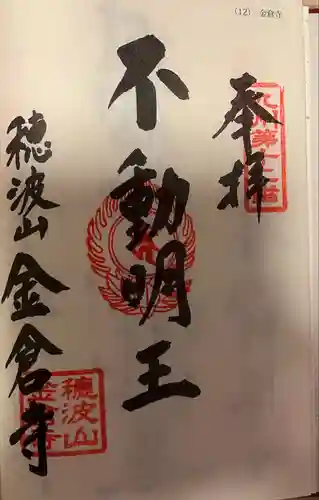 (12) 金倉寺
奉拝
九州第十二番
不動明王
穂波山金倉寺
穂波山
金倉寺